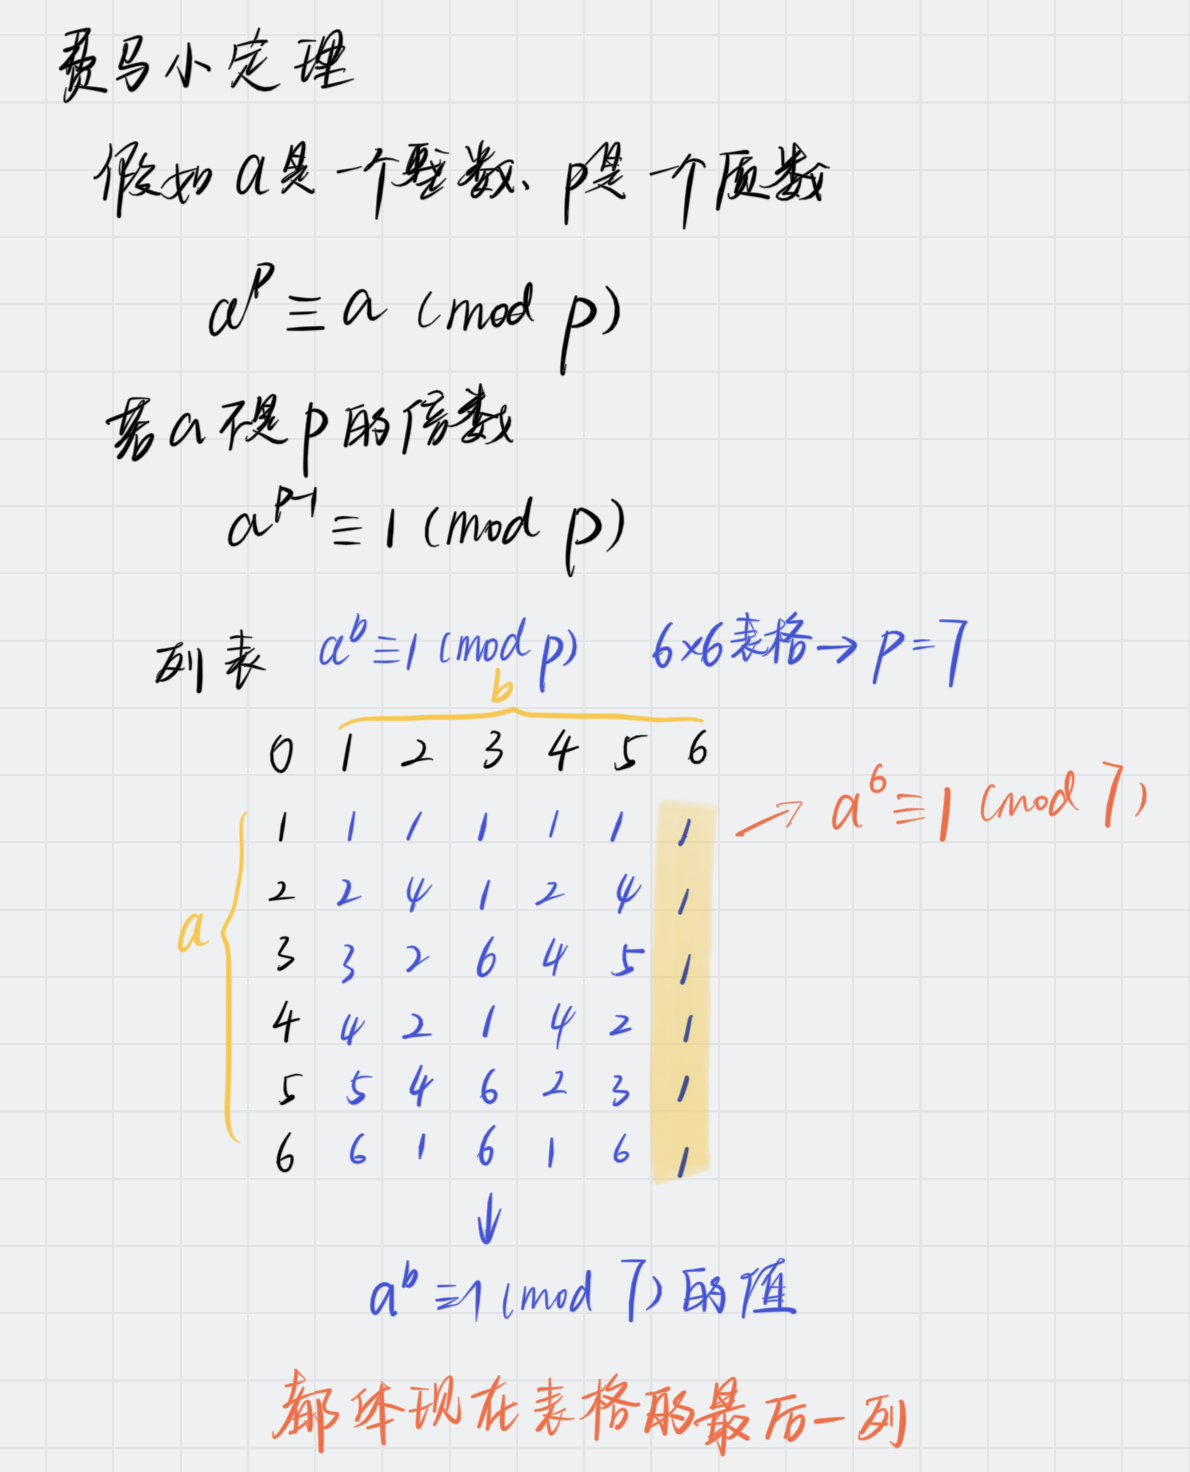 费马小定理
假如a是一个整数、p是一个质数
a^p ≡ a (mod p)
若a不是p的倍数
a^(p-1) ≡ 1 (mod p)
列表 a^b ≡ 1 (mod p) 6×6表格→p=7
b
0 1 2 3 4 5 6
1 1 1 1 1 1 1 → a^6 ≡ 1 (mod 7)
2 2 4 1 2 4 1
a
3 3 2 6 4 5 1
4 4 2 1 4 2 1
5 5 4 6 2 3 1
6 6 1 6 1 6 1
↓
a^b ≡ 1 (mod 7) 的值
都体现在表格的最后一列